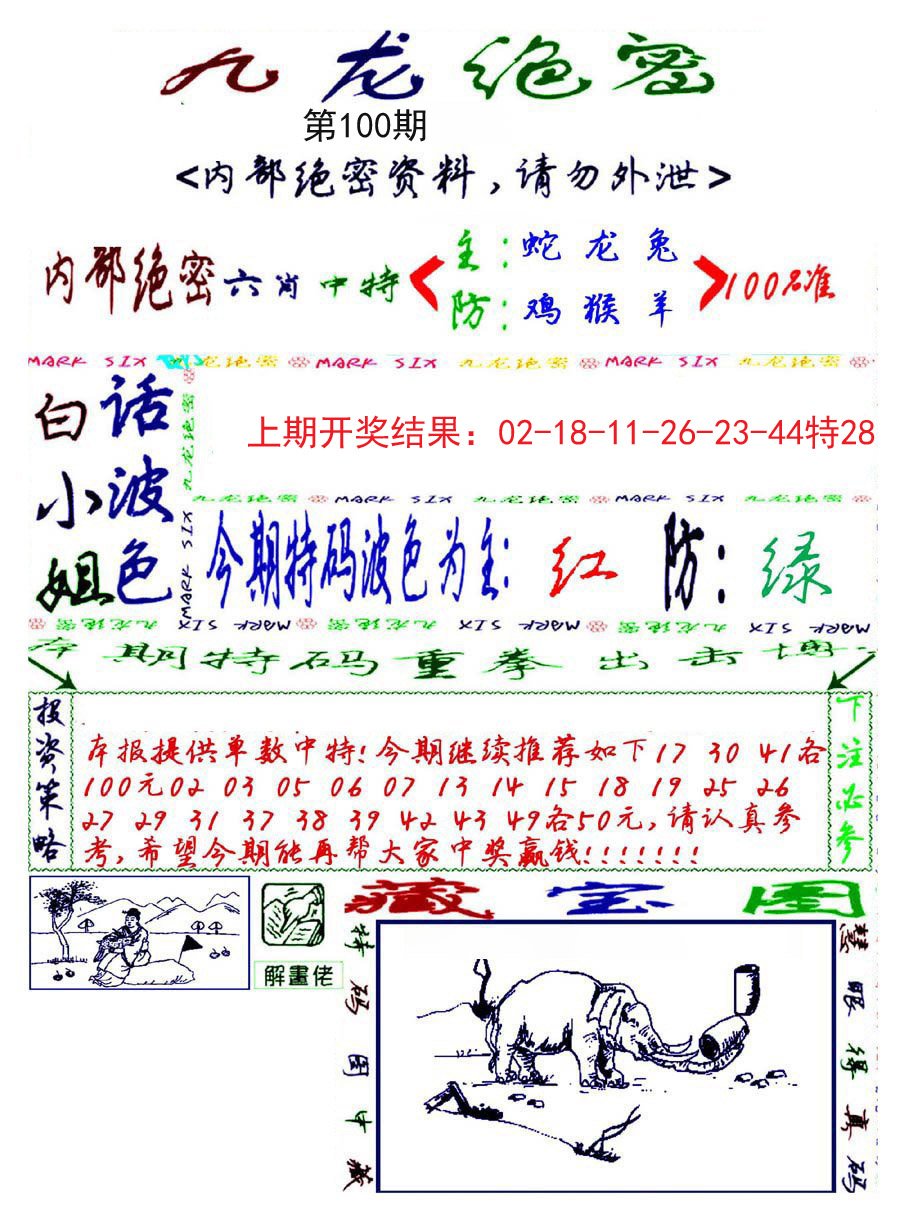 九龙绝密
第100期
<内部绝密资料,请勿外泄>
内部绝密六肖中特
主:蛇龙兔
防:鸡猴羊
100%准
MARK SIX 九龙绝密 MARK SIX 九龙绝密 MARK SIX 九龙绝密
白小姐
话波色
九龙绝密
MARK SIX
上期开奖结果：02-18-11-26-23-44特28
九龙绝密 MARK SIX 九龙绝密 MARK SIX 九龙绝密
今期特码波色为主:红 防:绿
九龙绝密 MARK SIX 九龙绝密 MARK SIX 九龙绝密 MARK SIX
本期特码重拳出击博
投资策略
本报提供单数中特!今期继续推荐如下17 30 41各
100元02 03 05 06 07 13 14 15 18 19 25 26
27 29 31 37 38 39 42 43 49各50元,请认真参
考,希望今期能再帮大家中奖赢钱!!!!!!!
下注必参
解畫佬
藏宝图
特码图中藏
慧眼得真码